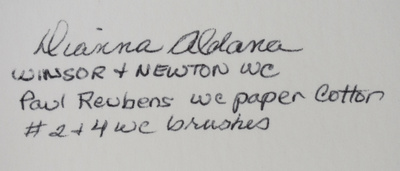 Dianna Aldana
WINSOR + NEWTON WC
Paul Reubens wc paper Cotton
#2+4 wc brushes